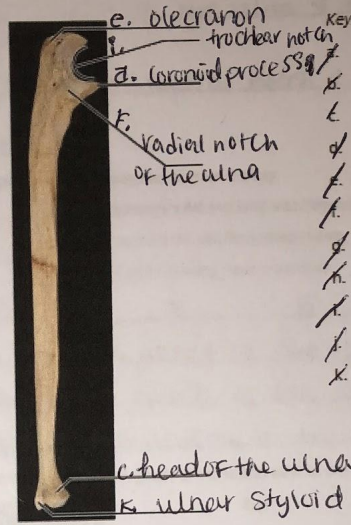 e. olecranon
Key
i.
trochlear notch
a. coronoid process
a.
b.
c.
d.
e.
f.
radial notch
of the ulna
g.
h.
i.
j.
k.
c. head of the ulna
k. ulnar Styloid